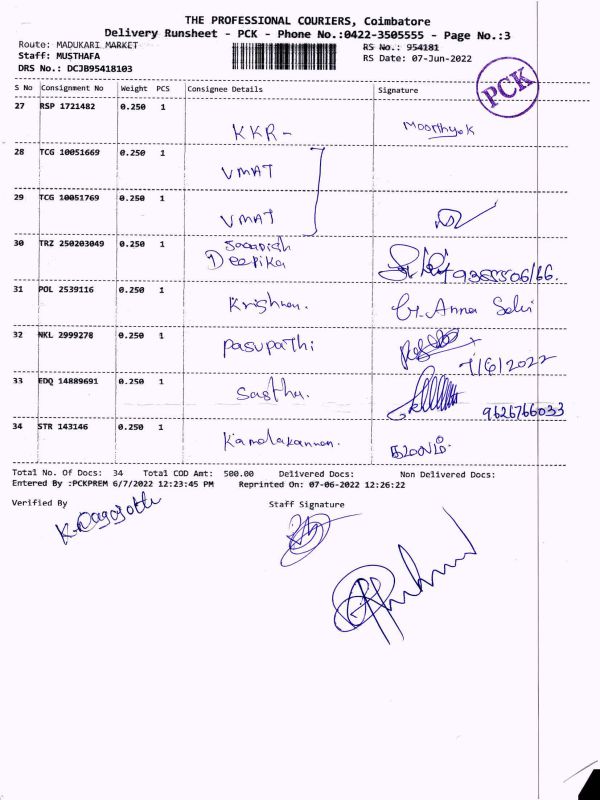 THE PROFESSIONAL COURIERS, Coimbatore
Delivery Runsheet - PCK - Phone No.:0422-3505555 - Page No.:3
Route: MADUKARI MARKET RS No.: 954181
Staff: MUSTHAFA RS Date: 07-Jun-2022
DRS No.: DCJB95418103
PCK
S No Consignment No Weight PCS Consignee Details Signature
27 RSP 1721482 0.250 1
KKR - Moorthy.K
28 TCG 10051669 0.250 1
VMAT
29 TCG 10051769 0.250 1
VMAT
30 TRZ 250203049 0.250 1
Deepika
31 POL 2539116 0.250 1
Krishnan. G. Anna Selvi
32 NKL 2999278 0.250 1
Pasupathi
7/6/2022
33 EDQ 14889691 0.250 1
Sasthu. 9626766033
34 STR 143146 0.250 1
Kamalakannan.
Total No. Of Docs: 34 Total COD Amt: 500.00 Delivered Docs: Non Delivered Docs:
Entered By :PCKPREM 6/7/2022 12:23:45 PM Reprinted On: 07-06-2022 12:26:22
Verified By Staff Signature